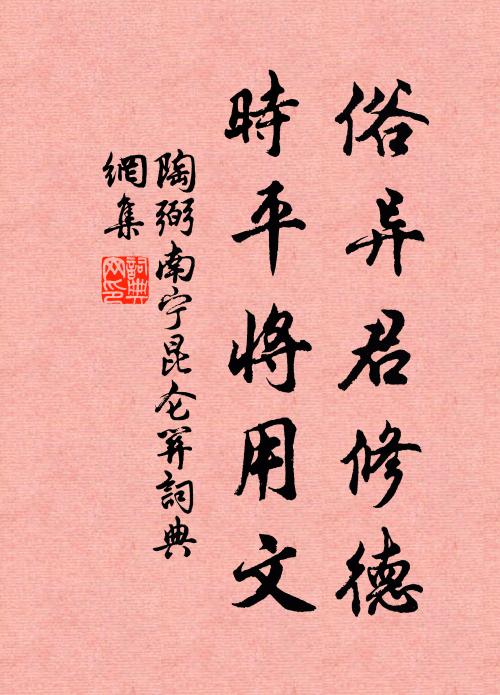 俗异君修德
時平將用文
陶弼南宁昆仑关詞典
網集
詞典
网印